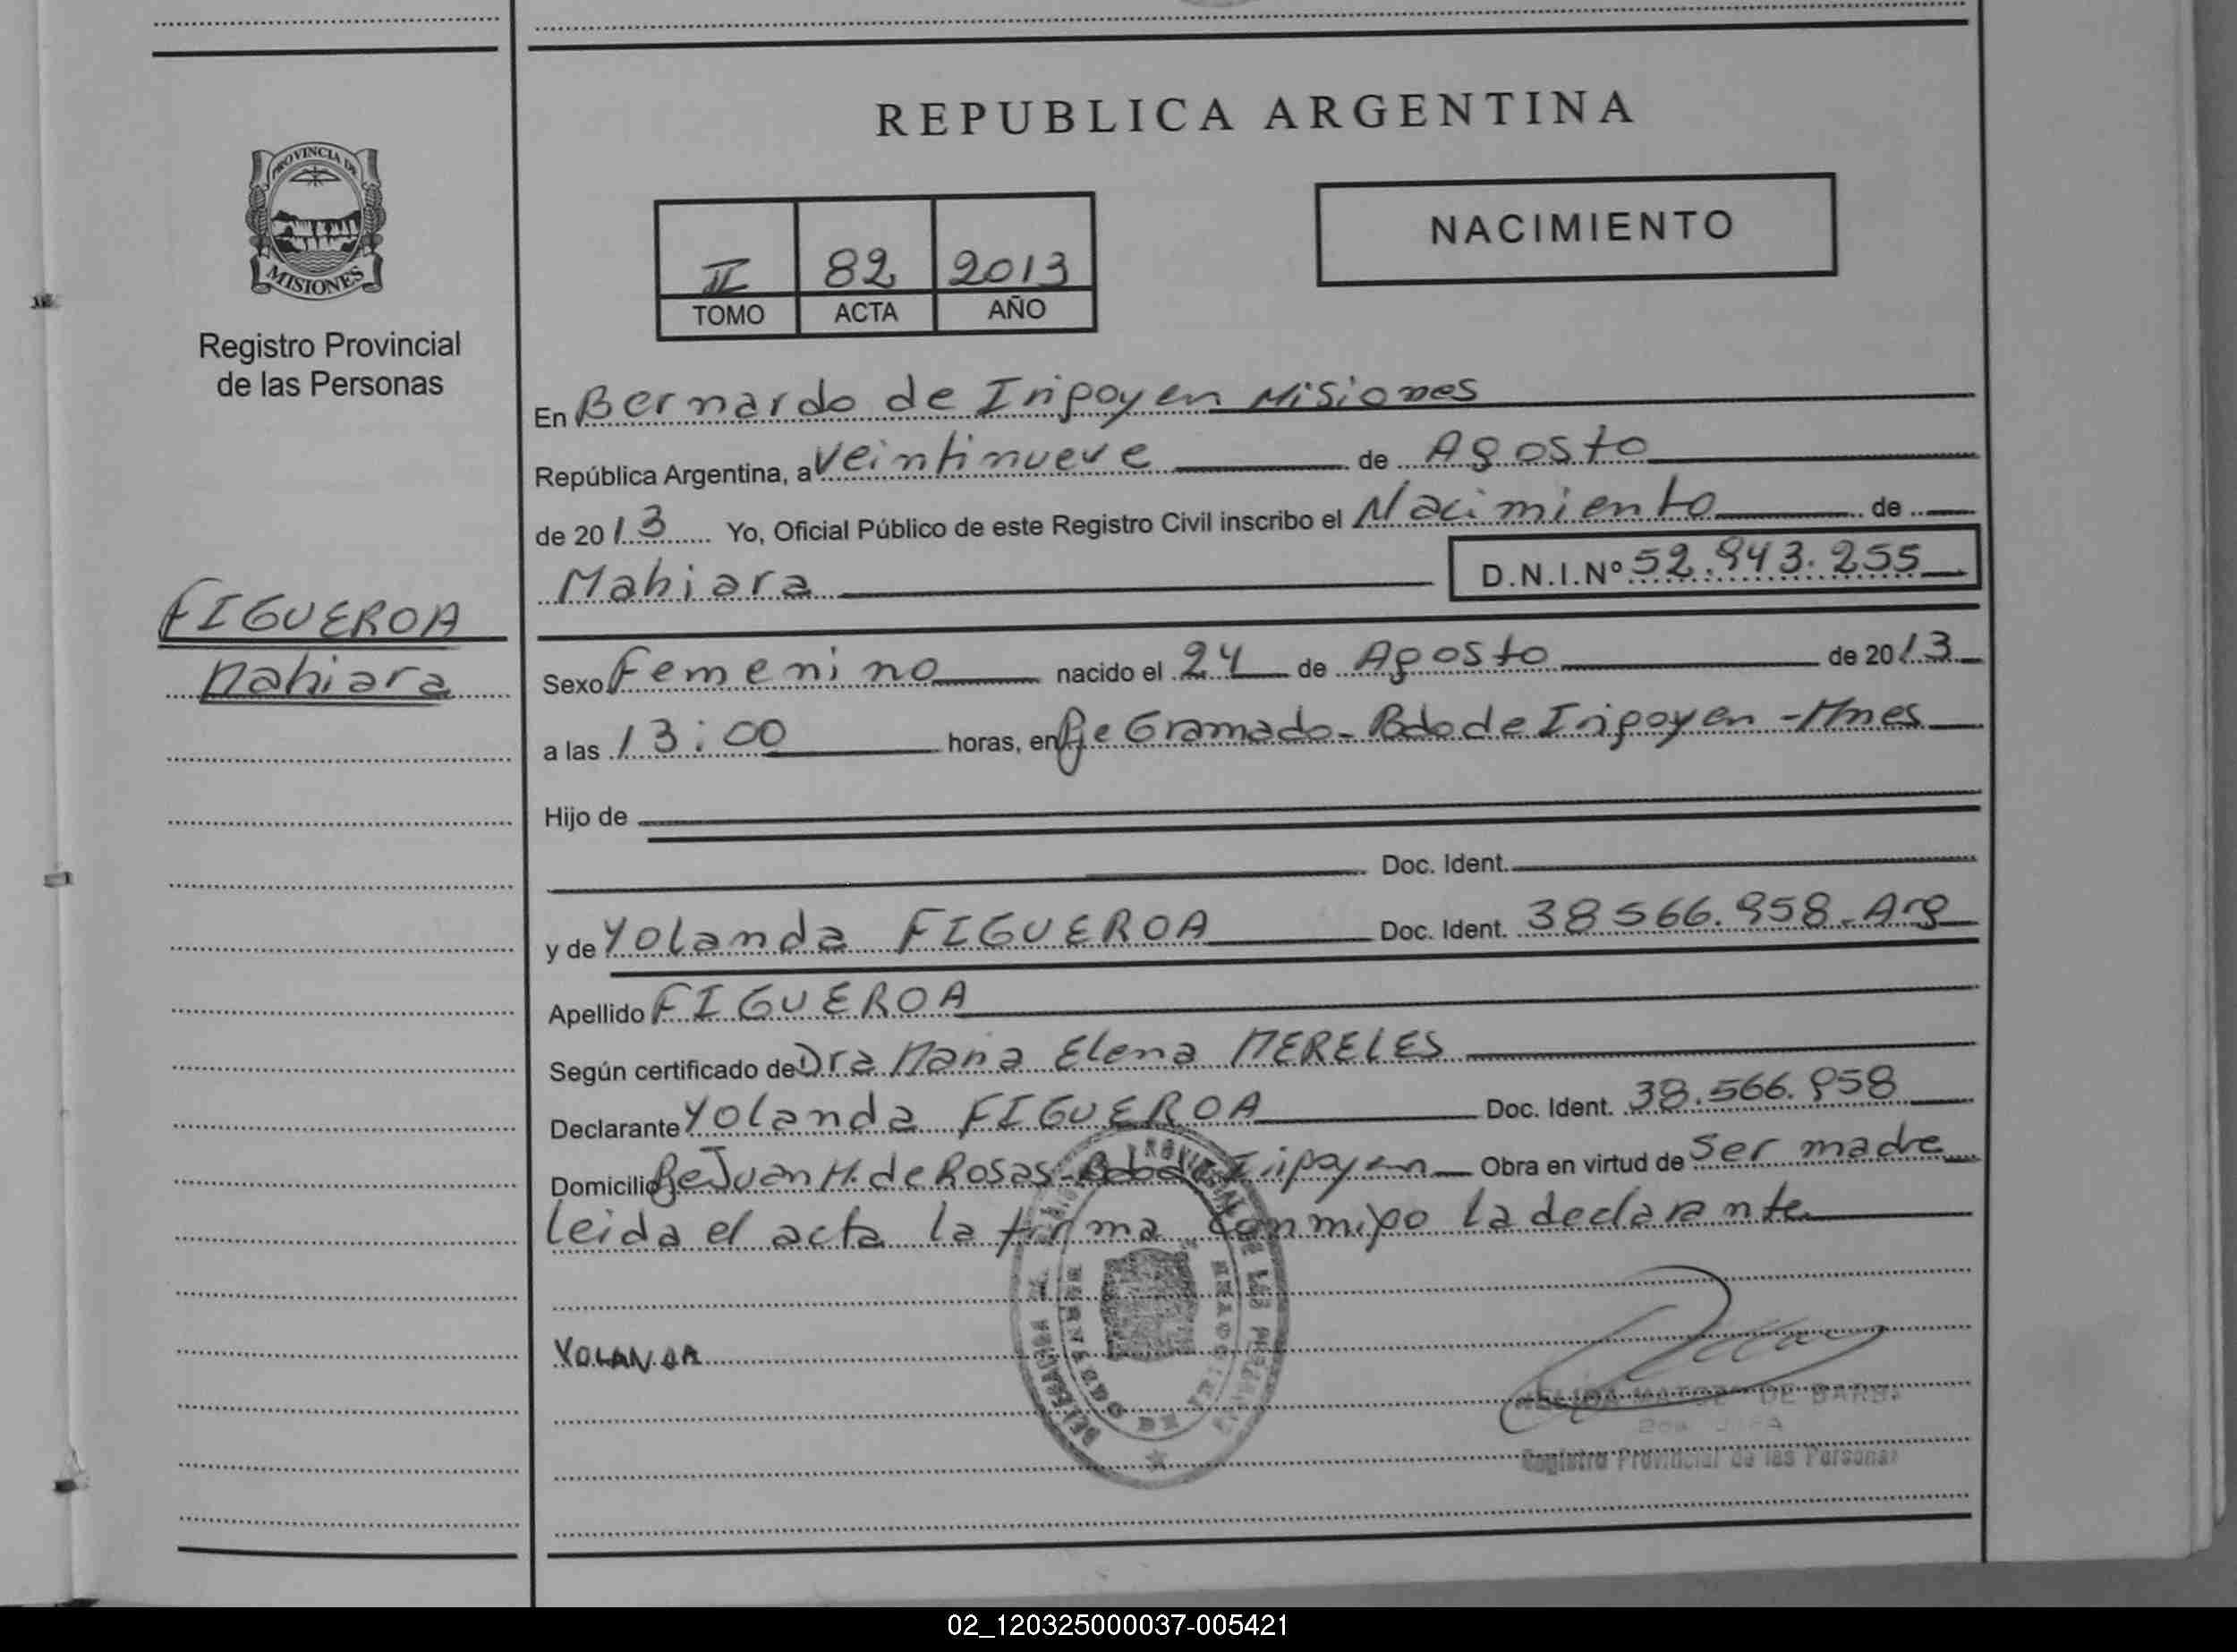 REPUBLICA ARGENTINA
PROVINCIA DE
MISIONES
Registro Provincial
de las Personas
II 82 2013
TOMO ACTA AÑO
NACIMIENTO
En Bernardo de Iripoyen Misiones
República Argentina, a Veintinueve de Agosto
de 2013 Yo, Oficial Público de este Registro Civil inscribo el Nacimiento de
Mahiara D.N.I.Nº 52.943.255
FIGUEROA
Mahiara
Sexo Femenino nacido el 24 de Agosto de 2013
a las 13:00 horas, en Pje Gramado - Bdo de Iripoyen - Mnes
Hijo de
Doc. Ident.
y de Yolanda FIGUEROA Doc. Ident. 38 566.958 - Arg
Apellido FIGUEROA
Según certificado de Dra Maria Elena MERELES
Declarante Yolanda FIGUEROA Doc. Ident. 38.566.958
Domicilio Pje Juan M. de Rosas - Bdo de Iripoyen Obra en virtud de Ser madre
leida el acta la firma conmigo la declarante
YOLANDA
DE BARB
Registro Provincial de las Personas
02_120325000037-005421